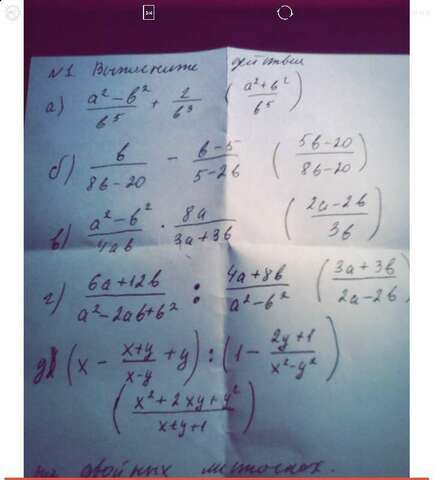 №1. Выполните действия
а) (a² - b²)/b⁵ + 2/b³ ( (a² + b²)/b⁵ )
б) b/(8b - 20) - (b - 5)/(5 - 2b) ( (5b - 20)/(8b - 20) )
в) (a² - b²)/(4ab) · 8a/(3a + 3b) ( (2a - 2b)/(3b) )
г) (6a + 12b)/(a² - 2ab + b²) : (4a + 8b)/(a² - b²) ( (3a + 3b)/(2a - 2b) )
д) (x - (x+y)/(x-y) + y) : (1 - (2y + 1)/(x² - y²))
( (x² + 2xy + y²)/(x+y+1) )
на двойных листочках.